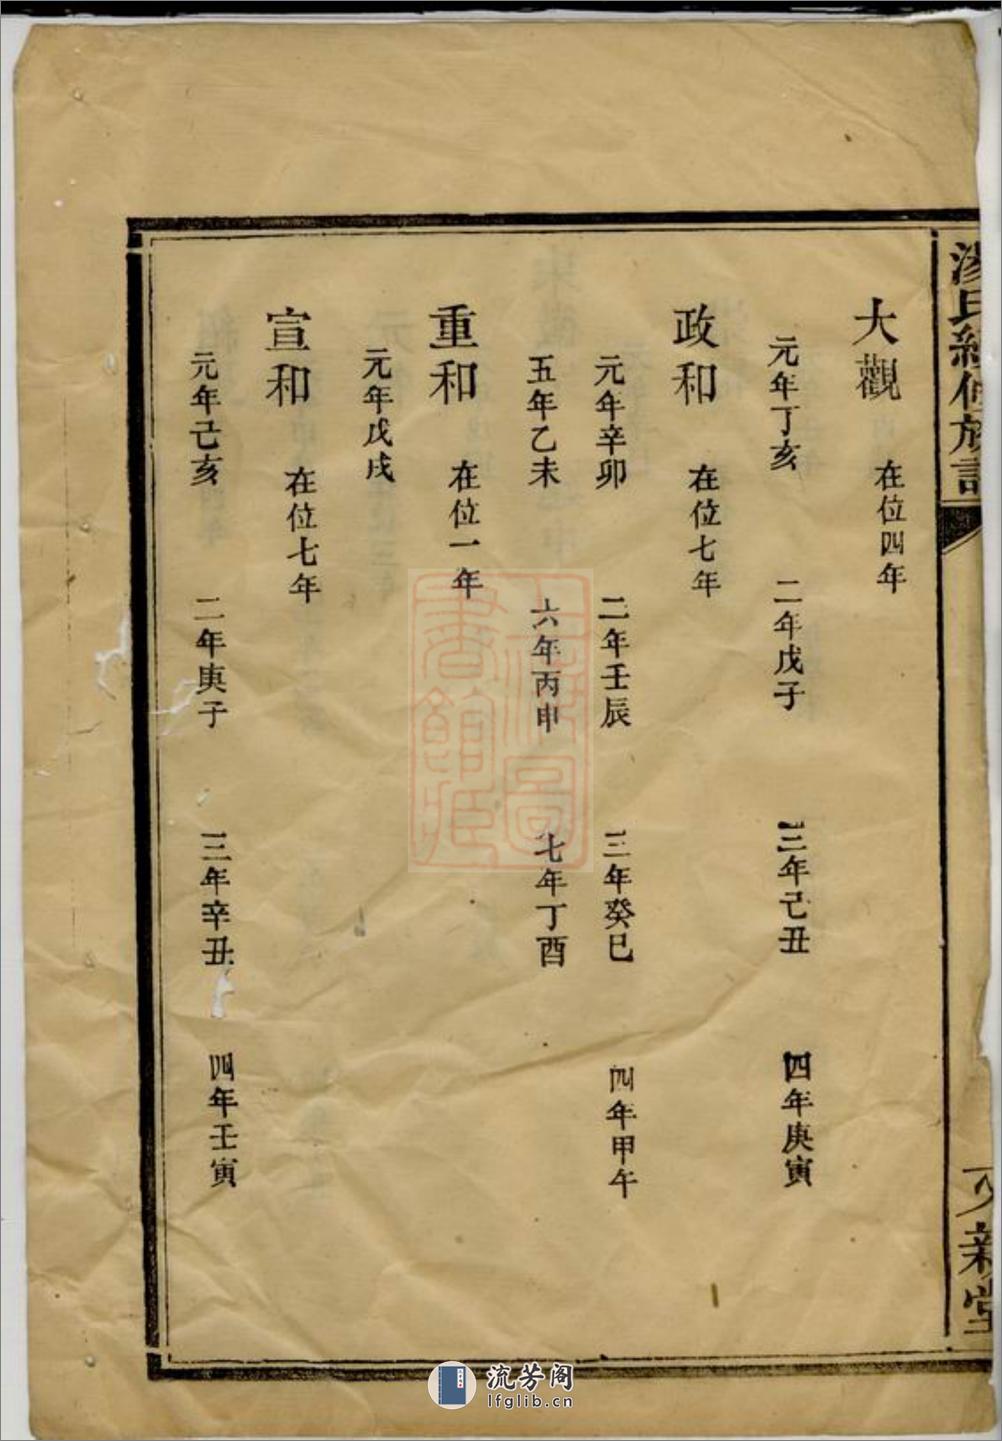 大觀 在位四年
元年丁亥 二年戊子 三年己丑 四年庚寅
政和 在位七年
元年辛卯 二年壬辰 三年癸巳 四年甲午
五年乙未 六年丙申 七年丁酉
重和 在位一年
元年戊戌
宣和 在位七年
元年己亥 二年庚子 三年辛丑 四年壬寅
氏 修族
新堂
上海圖
書館藏
流芳阁
lfglib.cn